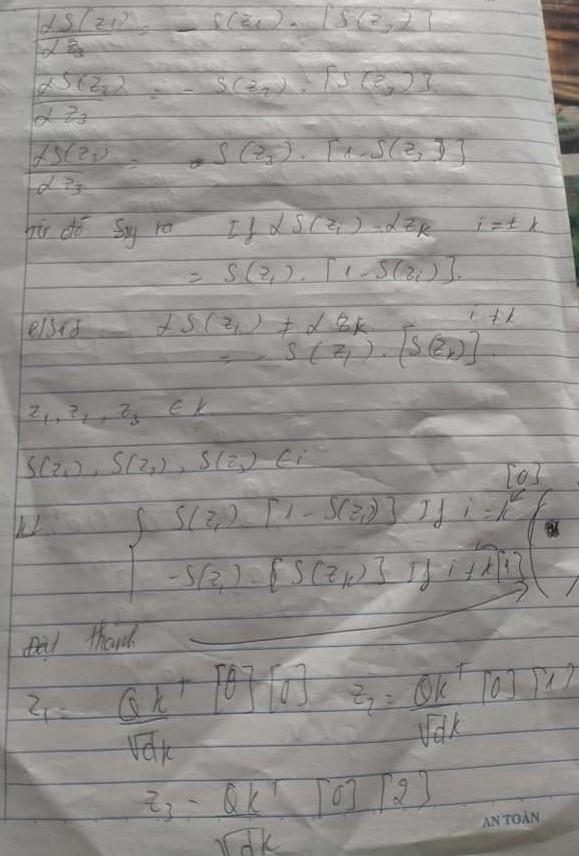 dS(z1) = - S(z1) . [S(z3)]
dz3
dS(z2) = - S(z2) . [S(z3)]
dz3
dS(z3) = S(z3) . [1 - S(z3)]
dz3
từ đó suy ra If dS(zi) = dzk i = k
= S(zi) . [1 - S(zi)].
dS(zi) ≠ dzk i ≠ k
= - S(zi) . [S(zk)].
z1, z2, z3 ∈ k
S(z1), S(z2), S(z3) ∈ i
[0]
KL: { S(zi) . [1 - S(zi)] If i = k
-S(zi) . [S(zk)] If i ≠ k [1]
Đặt thành
z1 = QK^T [0][0] z2 = QK^T [0][1]
√dk √dk
z3 = QK^T [0][2]
√dk
AN TOÀN